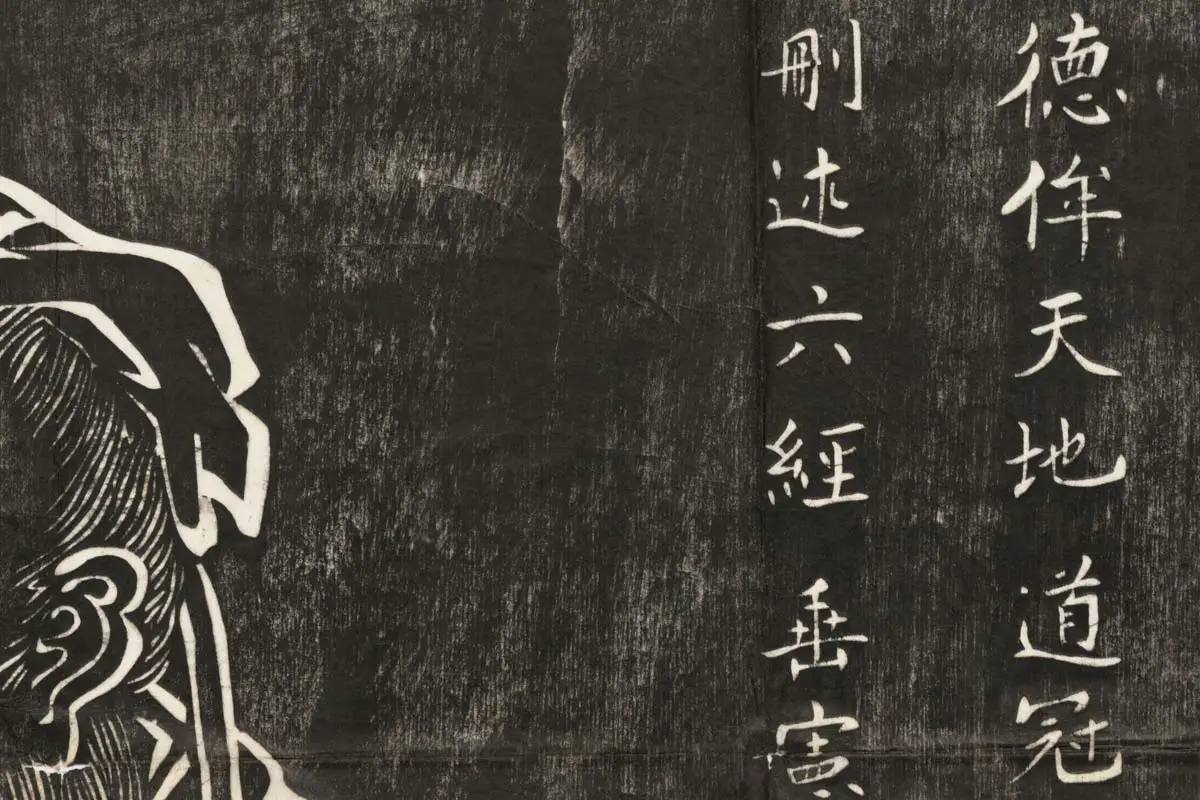 德侔天地道冠
刪述六經垂憲